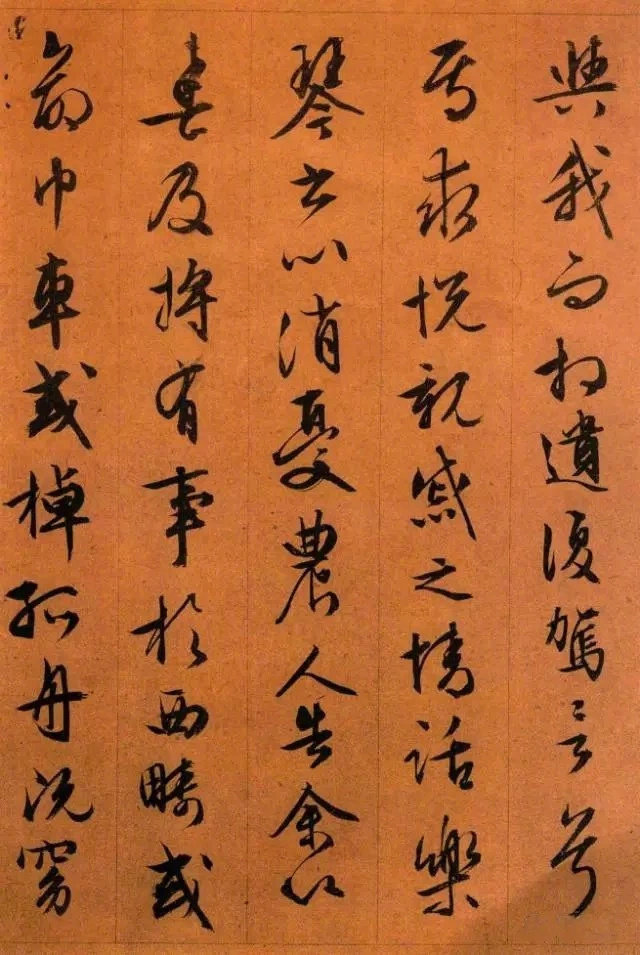 與我而相遺復駕言兮
焉求悅親戚之情話樂
琴書以消憂農人告余以
春及將有事於西疇或
命巾車或棹孤舟既窈